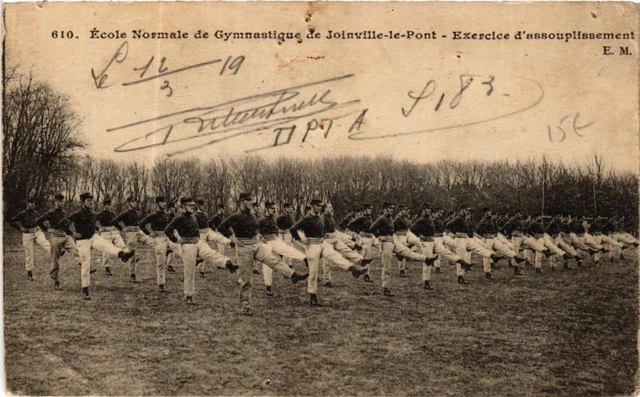 610. École Normale de Gymnastique de Joinville-le-Pont - Exercice d'assouplissement
E. M.
Le 12/3 19
S 183
15€